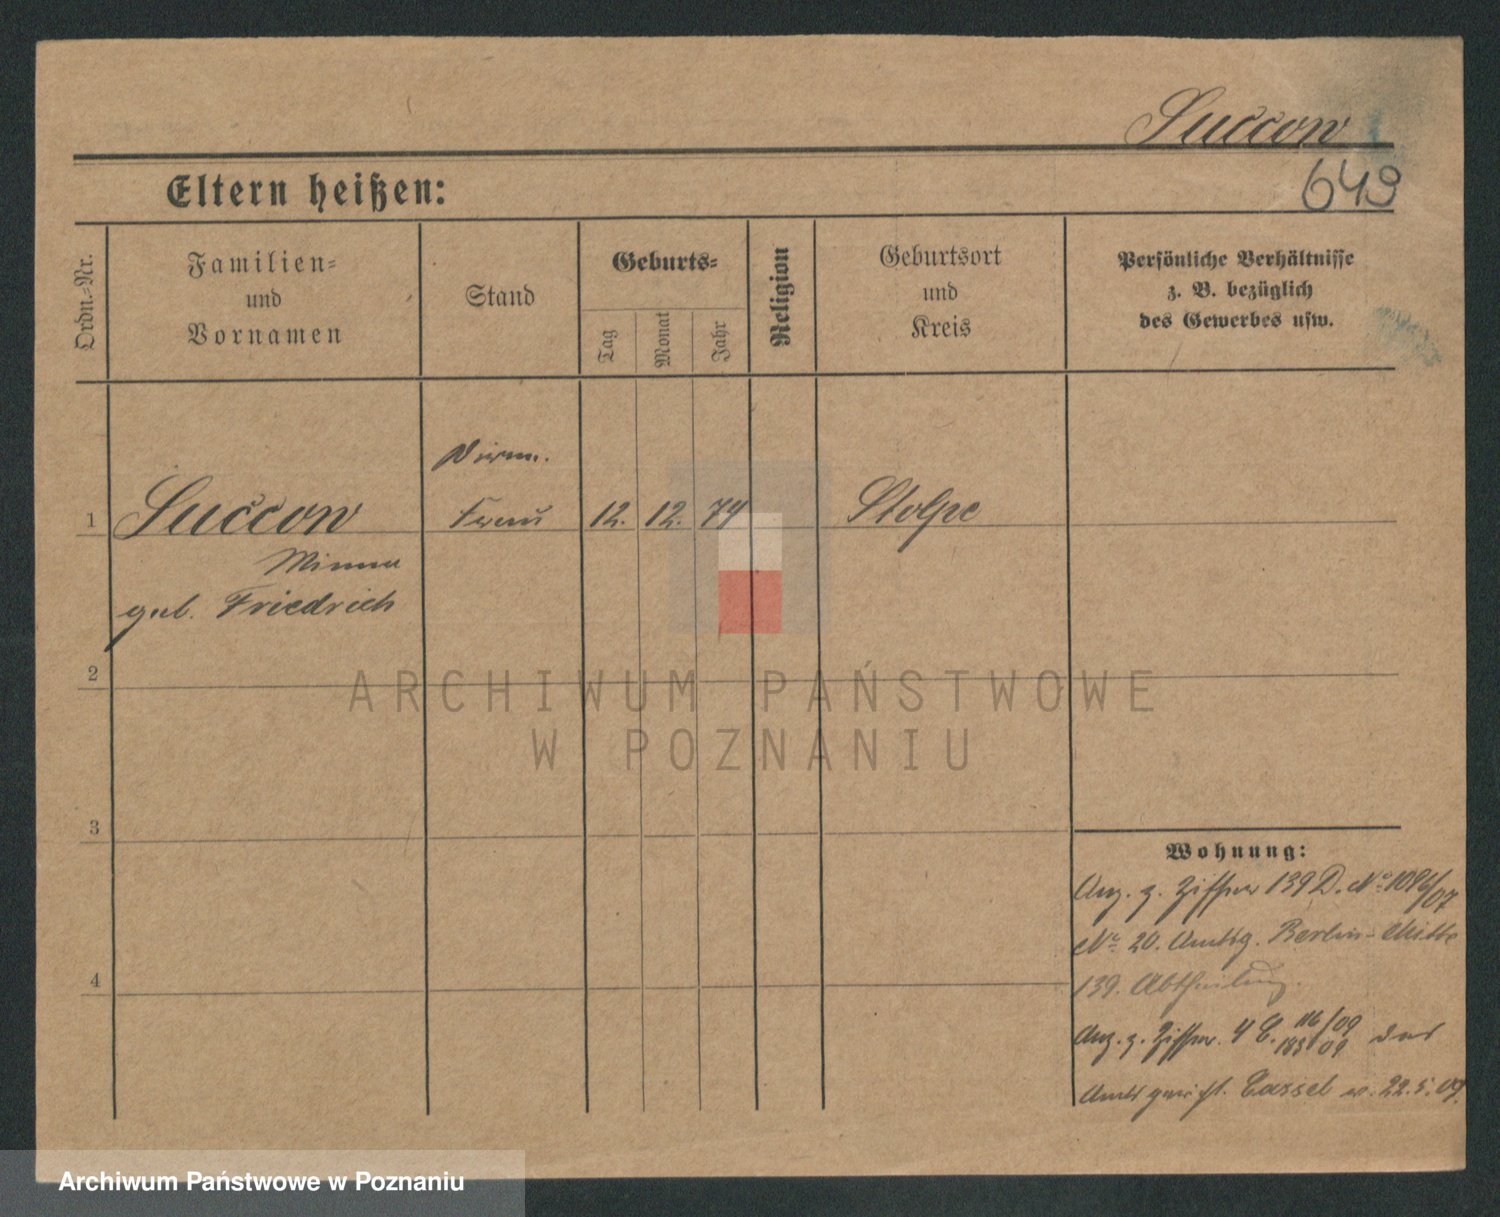 Succow
649
Eltern heißen:
Ordn.-Nr.
Familien-
und
Vornamen
Stand
Geburts-
Tag
Monat
Jahr
Religion
Geburtsort
und
Kreis
Persönliche Verhältnisse
z. B. bezüglich
des Gewerbes usw.
1
Succow
Frau
12. 12. 74
Stolpe
Minna
geb. Friedrich
2
ARCHIWUM PAŃSTWOWE
W POZNANIU
3
4
Wohnung:
Anz. z. Ziffer 139 D. No 1096/07
No 20. Amtsg. Berlin-Mitte
139. Abtheilung.
Anz. z. Ziffer. 4 C. 116/09 des
183 09
Amtsgericht. Cassel v. 22.5.09.
Archiwum Państwowe w Poznaniu